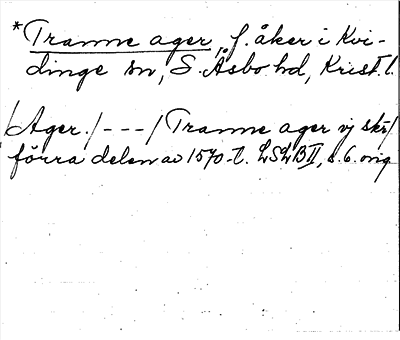 *Tranne ager, f. åker i Kvi-
dinge sn, S. Åsbo hd, Krist. l.
/Ager./---/Tranne ager vj skr/
förra delen av 1570-t. LSLB II, s. 6. orig